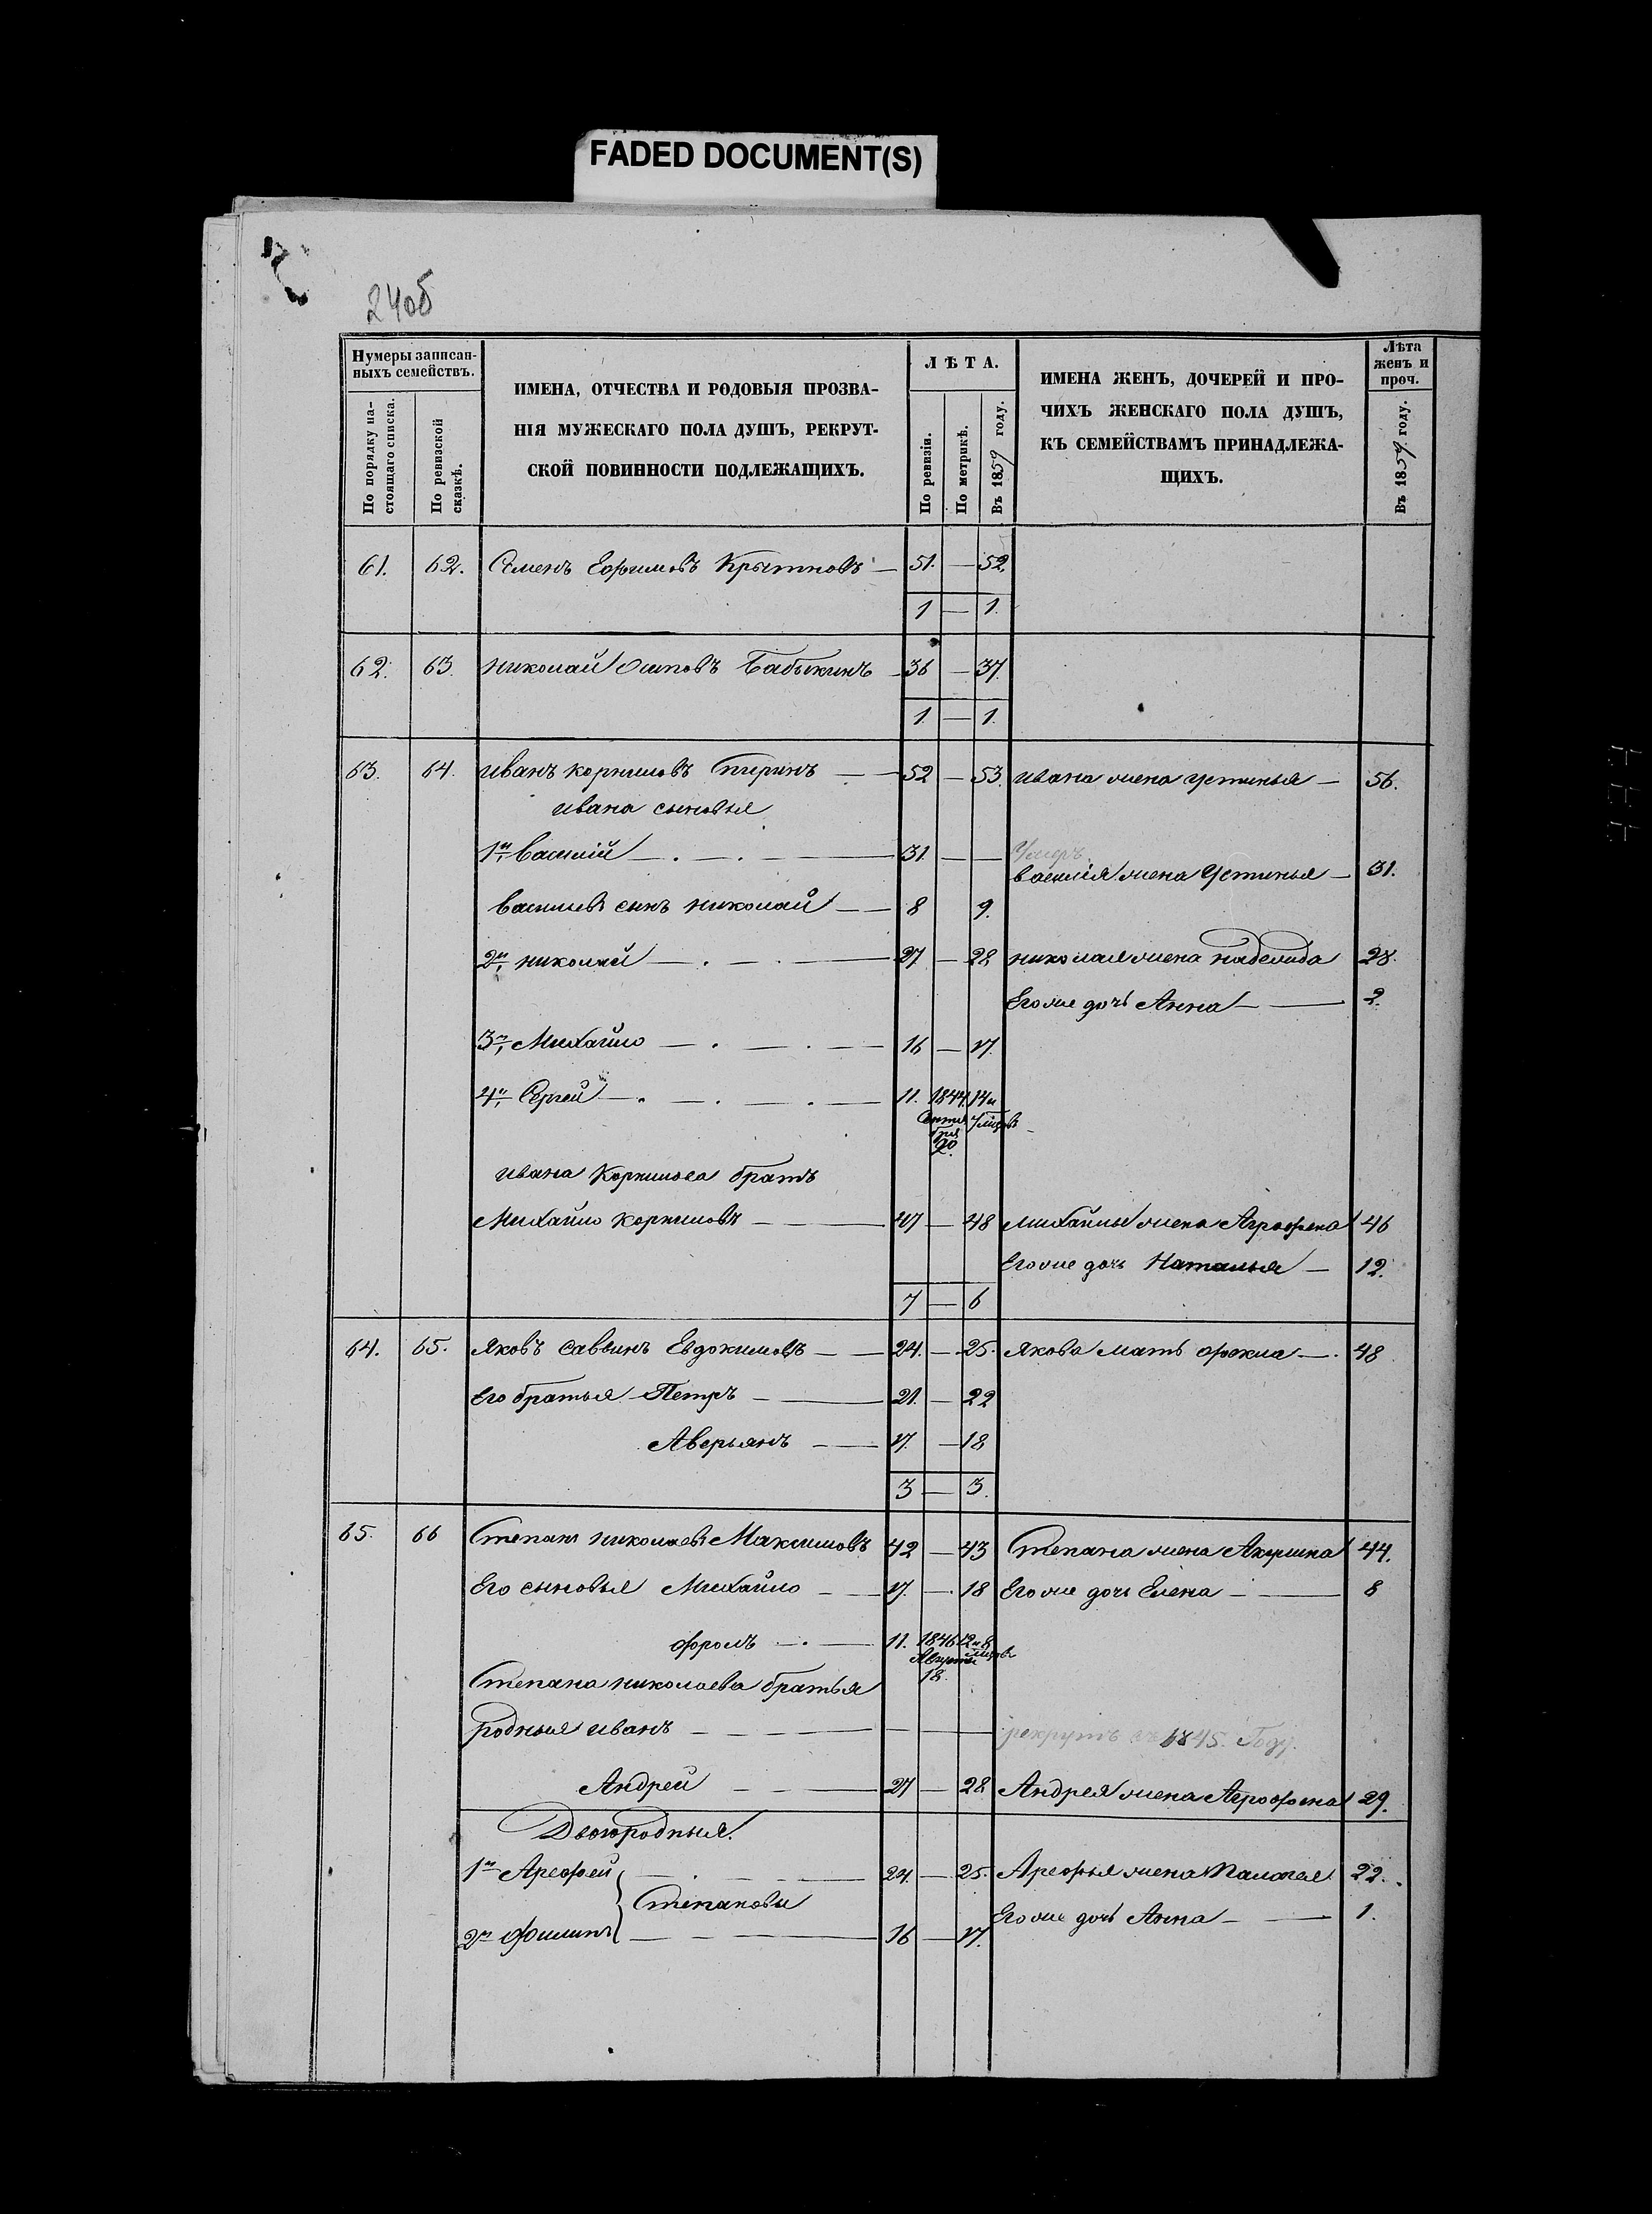 FADED DOCUMENT(S)
24об
Нумеры записан-
ныхъ семействъ.
По порядку на-
стоящаго списка.
По ревизской
сказкѣ.
ИМЕНА, ОТЧЕСТВА И РОДОВЫЯ ПРОЗВА-
НІЯ МУЖЕСКАГО ПОЛА ДУШЪ, РЕКРУТ-
СКОЙ ПОВИННОСТИ ПОДЛЕЖАЩИХЪ.
ЛѢТА.
По ревизіи.
По метрикѣ.
Въ 1859 году.
ИМЕНА ЖЕНЪ, ДОЧЕРЕЙ И ПРО-
ЧИХЪ ЖЕНСКАГО ПОЛА ДУШЪ,
КЪ СЕМЕЙСТВАМЪ ПРИНАДЛЕЖА-
ЩИХЪ.
Лѣта
женъ и
проч.
Въ 1859 году.
61. 62. Семенъ Ефимовъ — 51. — 52.
1 — 1.
62. 63. николай Осиповъ Бабыкинъ — 36 — 37.
1. — 1.
63. 64. иванъ корниловъ — 52 — 53. ивана жена устинья — 56.
ивана сыновья
1й, василій — 31. — Умеръ
василія жена Устинья — 31.
васильевъ сынъ николай — 8 9.
2й, николай — 27 — 28 николая жена надежда 28.
Его же дочь Анна — 2.
3й, Михайло — 16 — 17.
4й, Сергей — 11. 1844. 14 и
Сентя 7 мцовъ
бря
20.
ивана Корнилова братъ
Михайло корниловъ — 47 — 48 михайлы жена Агрофена 46
Его же дочь Наталья — 12.
7 — 6
64. 65. яковъ саввинъ Евдокимовъ — 24. — 25. якова мать фекла — 48
Его братья Петръ — 21. — 22
Аверьянъ — 17. — 18
3 — 3.
65. 66 Степанъ николаевъ Максимовъ 42 — 43 Степана жена Акулина 44.
Его сыновья Михайло — 17. — 18 Его же дочь Елена — 8
фролъ — 11. 1846 12 и 8
Августа мцовъ
18.
Степана николаева братья
родные иванъ — рекрутъ въ 1845. Году.
Андрей — 27 — 28 Андрея жена Агрофена 29.
Двоюродныя.
1й Арефей — 24. — 25. Арефья жена Палагея 22.
Степановы
Его же дочь Анна — 1.
2й Филипъ — 16 — 17.